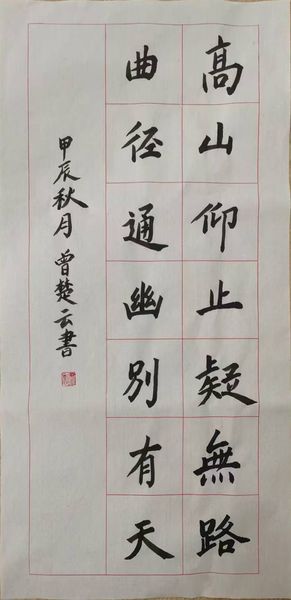 高山仰止疑無路
曲径通幽别有天
甲辰秋月曾楚云書